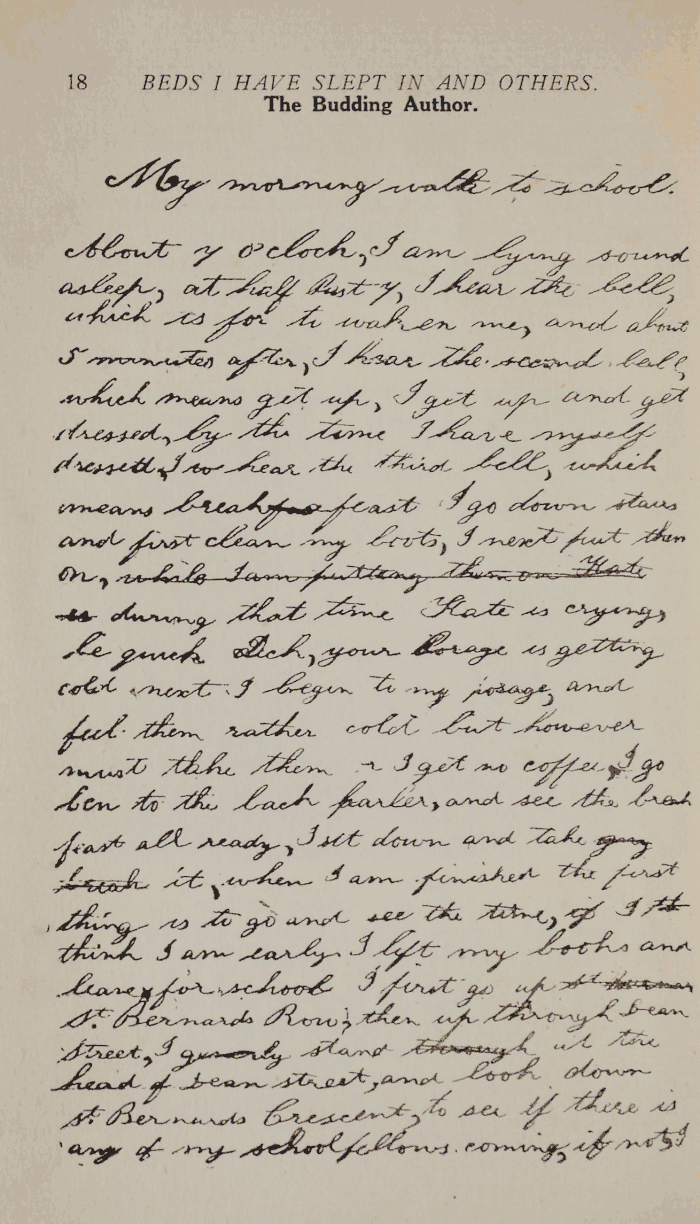 18 BEDS I HAVE SLEPT IN AND OTHERS.
The Budding Author.
My morning walk to school.
About 7 o'clock, I am lying sound
asleep, at half Past 7, I hear the bell,
which is for to waken me, and about
5 minutes after, I hear the second bell,
which means get up, I get up and get
dressed, by the time I have myself
dressed, I hear the third bell, which
means breakfeast I go down stairs
and first clean my boots, I next put them
on, while I am putting them on Kate
is during that time Kate is crying,
be quick Dick, your Porage is getting
cold next I begin to my porage, and
feel them rather cold but however
must take them I get no coffee, I go
ben to the back parler, and see the break
feast all ready, I sit down and take
break it, when I am finished the first
thing is to go and see the time, if I
think I am early I lift my books and
leave for school I first go up
St. Bernards Row, then up through Dean
Street, I stand through at the
head of Dean street, and look down
St. Bernards Crescent, to see if there is
any of my schoolfellows coming, if not, I